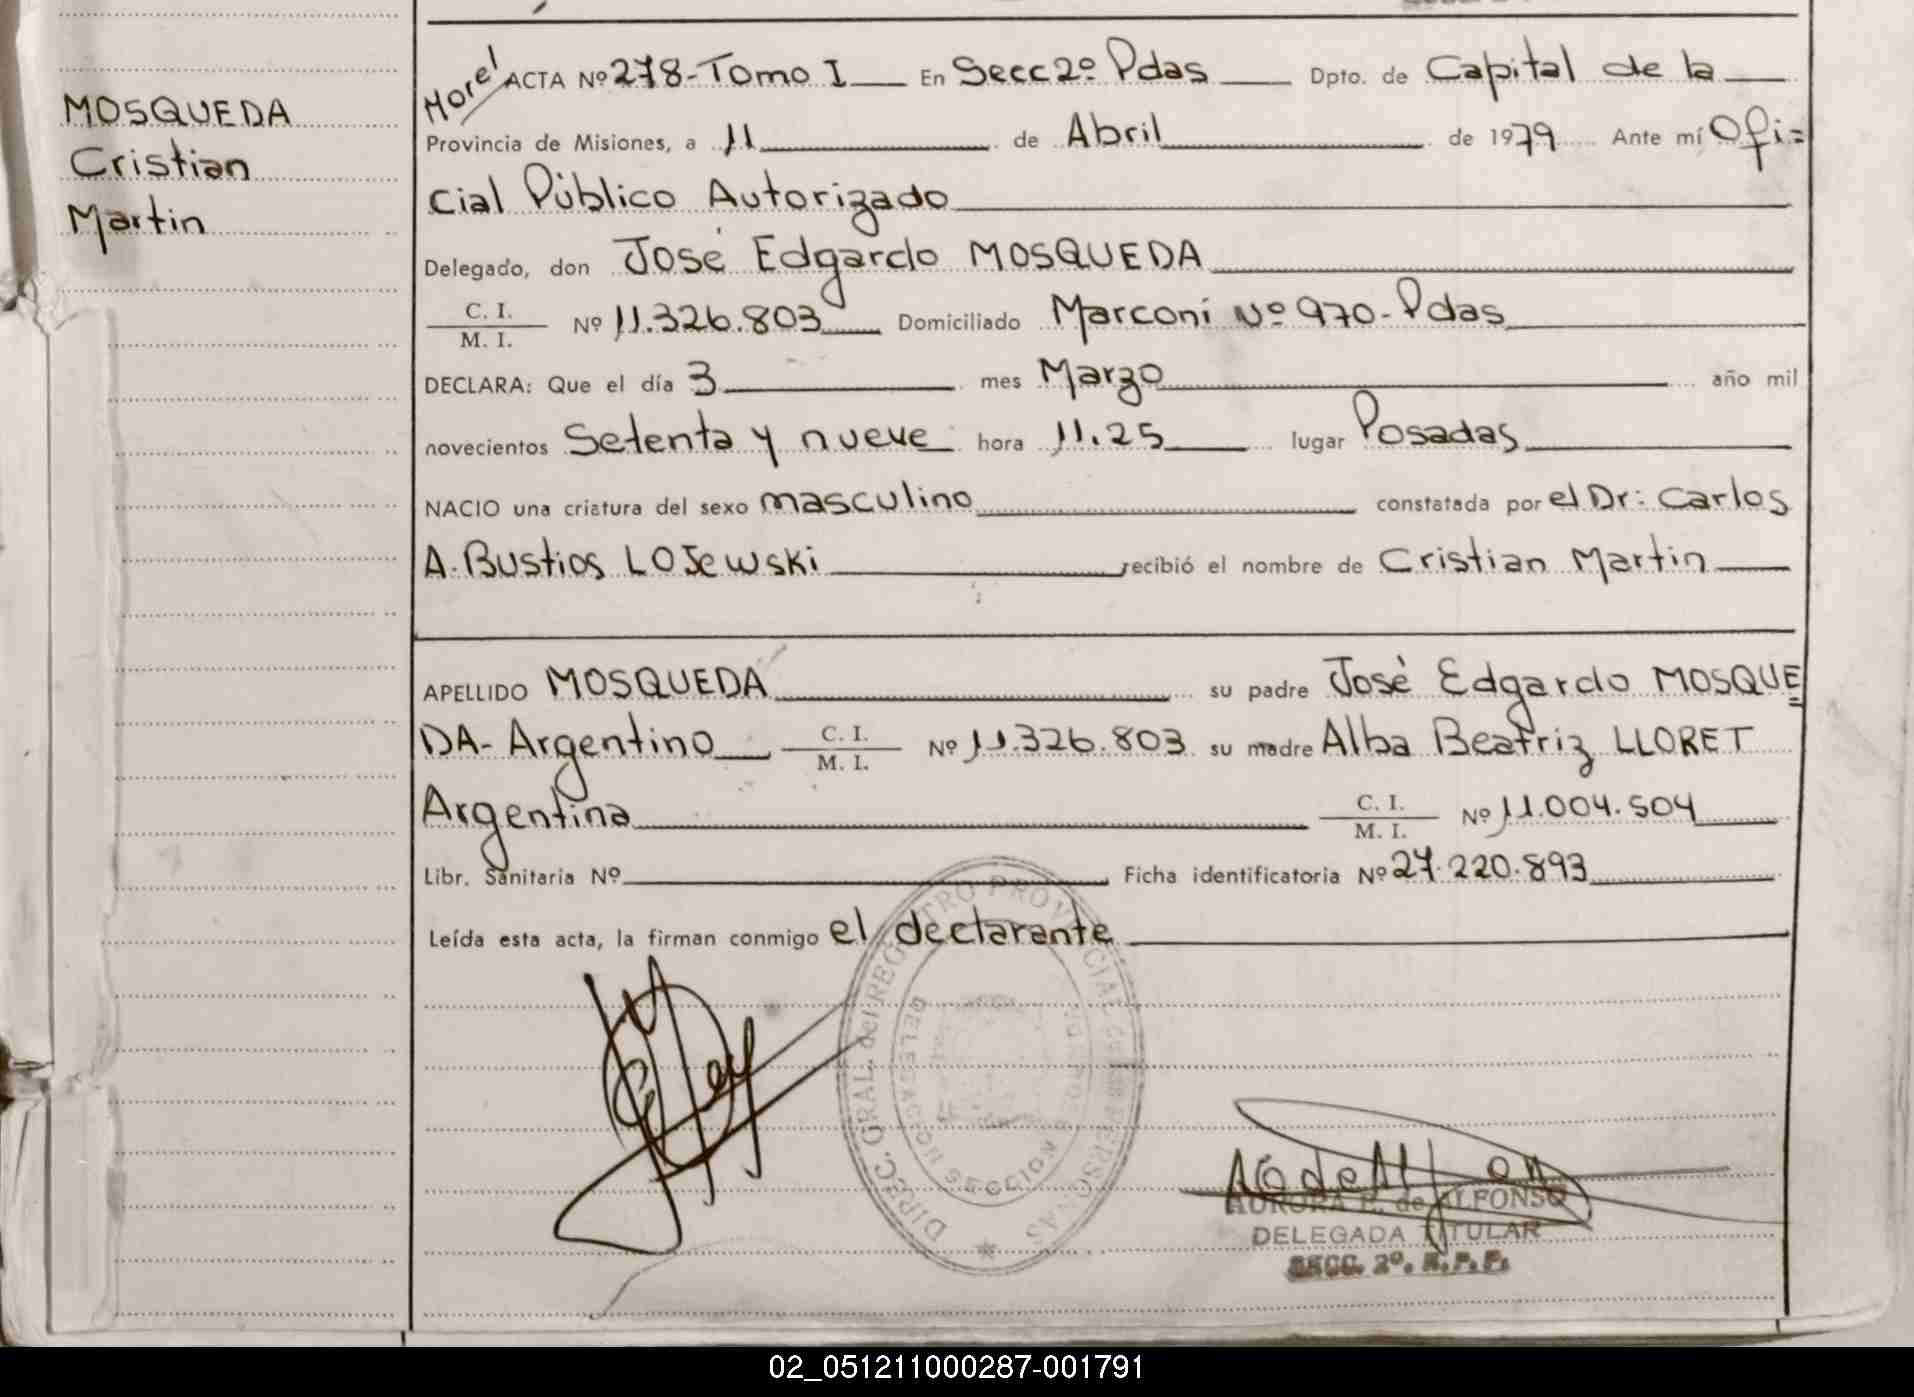 MOSQUEDA
Cristian
Martin
Morel ACTA Nº 278-Tomo I En Secc 2º Pdas Dpto. de Capital de la
Provincia de Misiones, a 11 de Abril de 1979 Ante mí Ofi=
cial Público Autorizado
Delegado, don José Edgardo MOSQUEDA
C. I.
M. I.
Nº 11.326.803 Domiciliado Marconi Nº 970-Pdas
DECLARA: Que el día 3 mes Marzo año mil
novecientos Setenta y nueve hora 11.25 lugar Posadas
NACIO una criatura del sexo masculino constatada por el Dr: Carlos
A. Bustios LOJewski recibió el nombre de Cristian Martin
APELLIDO MOSQUEDA su padre José Edgardo MOSQUE=
DA- Argentino C. I. M. I. Nº 11.326.803 su madre Alba Beatriz LLORET
Argentina C. I. M. I. Nº 11.004.504
Libr. Sanitaria Nº Ficha identificatoria Nº 27.220.893
Leída esta acta, la firman conmigo el declarante
DIREC. GRAL. del REGISTRO PROVINCIAL de las PERSONAS
DELEGACION SECCION
AURORA E. de ALFONSO
DELEGADA TITULAR
SECC. 2º. R.P.P.
02_051211000287-001791